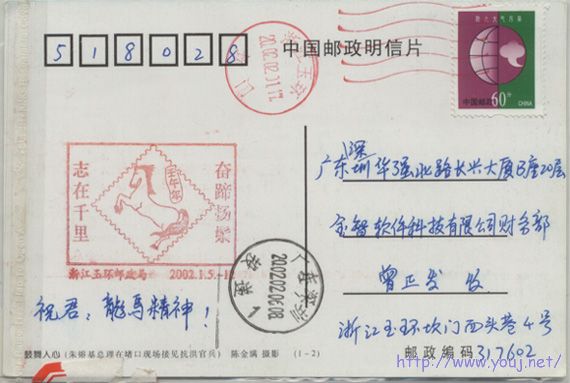 518028
中国邮政明信片
防止大气污染
中国邮政 60分
CHINA
浙江玉环
2002.02.01.17
广东深圳华强北路长兴大厦B座20层
金智软件科技有限公司财务部
曾正发 收
浙江玉环坎门西头巷4号
邮政编码 317602
志在千里
壬午年
奋蹄扬鬃
浙江玉环邮政局 2002.1.5.-12
广东深圳
2002.02.06.08
1
祝君：龍马精神！
鼓舞人心（朱镕基总理在堵口现场接见抗洪官兵） 陈金满 摄影 （1-2）
http://www.youj.net/